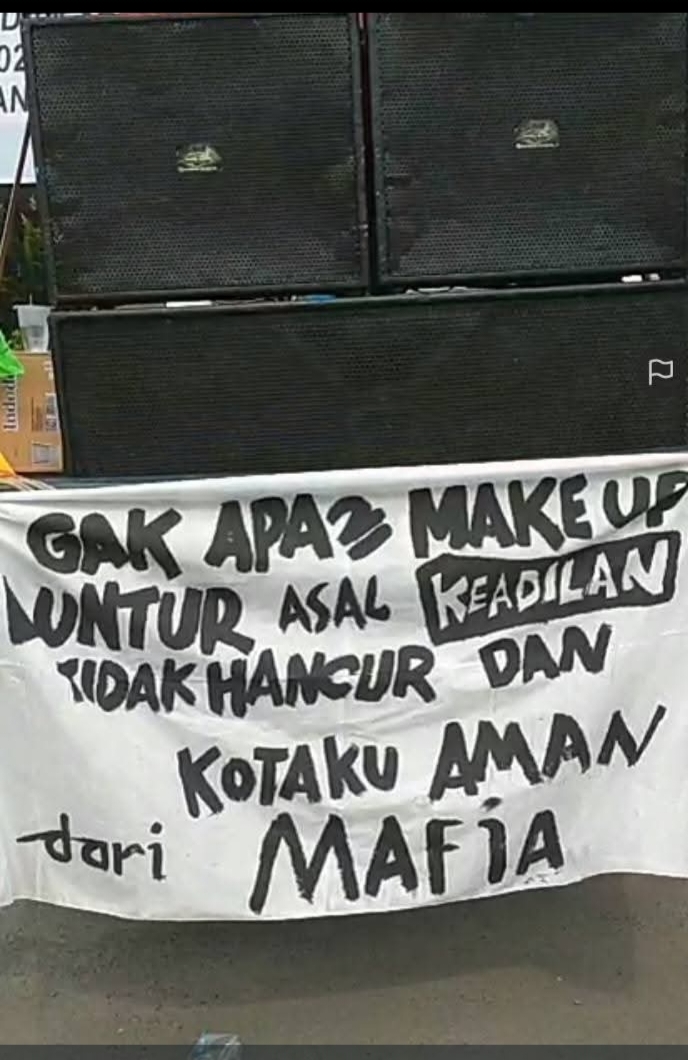 02
AN
Indo
GAK APA2 MAKE UP
LUNTUR ASAL KEADILAN
TIDAK HANCUR DAN
KOTAKU AMAN
dari MAFiA